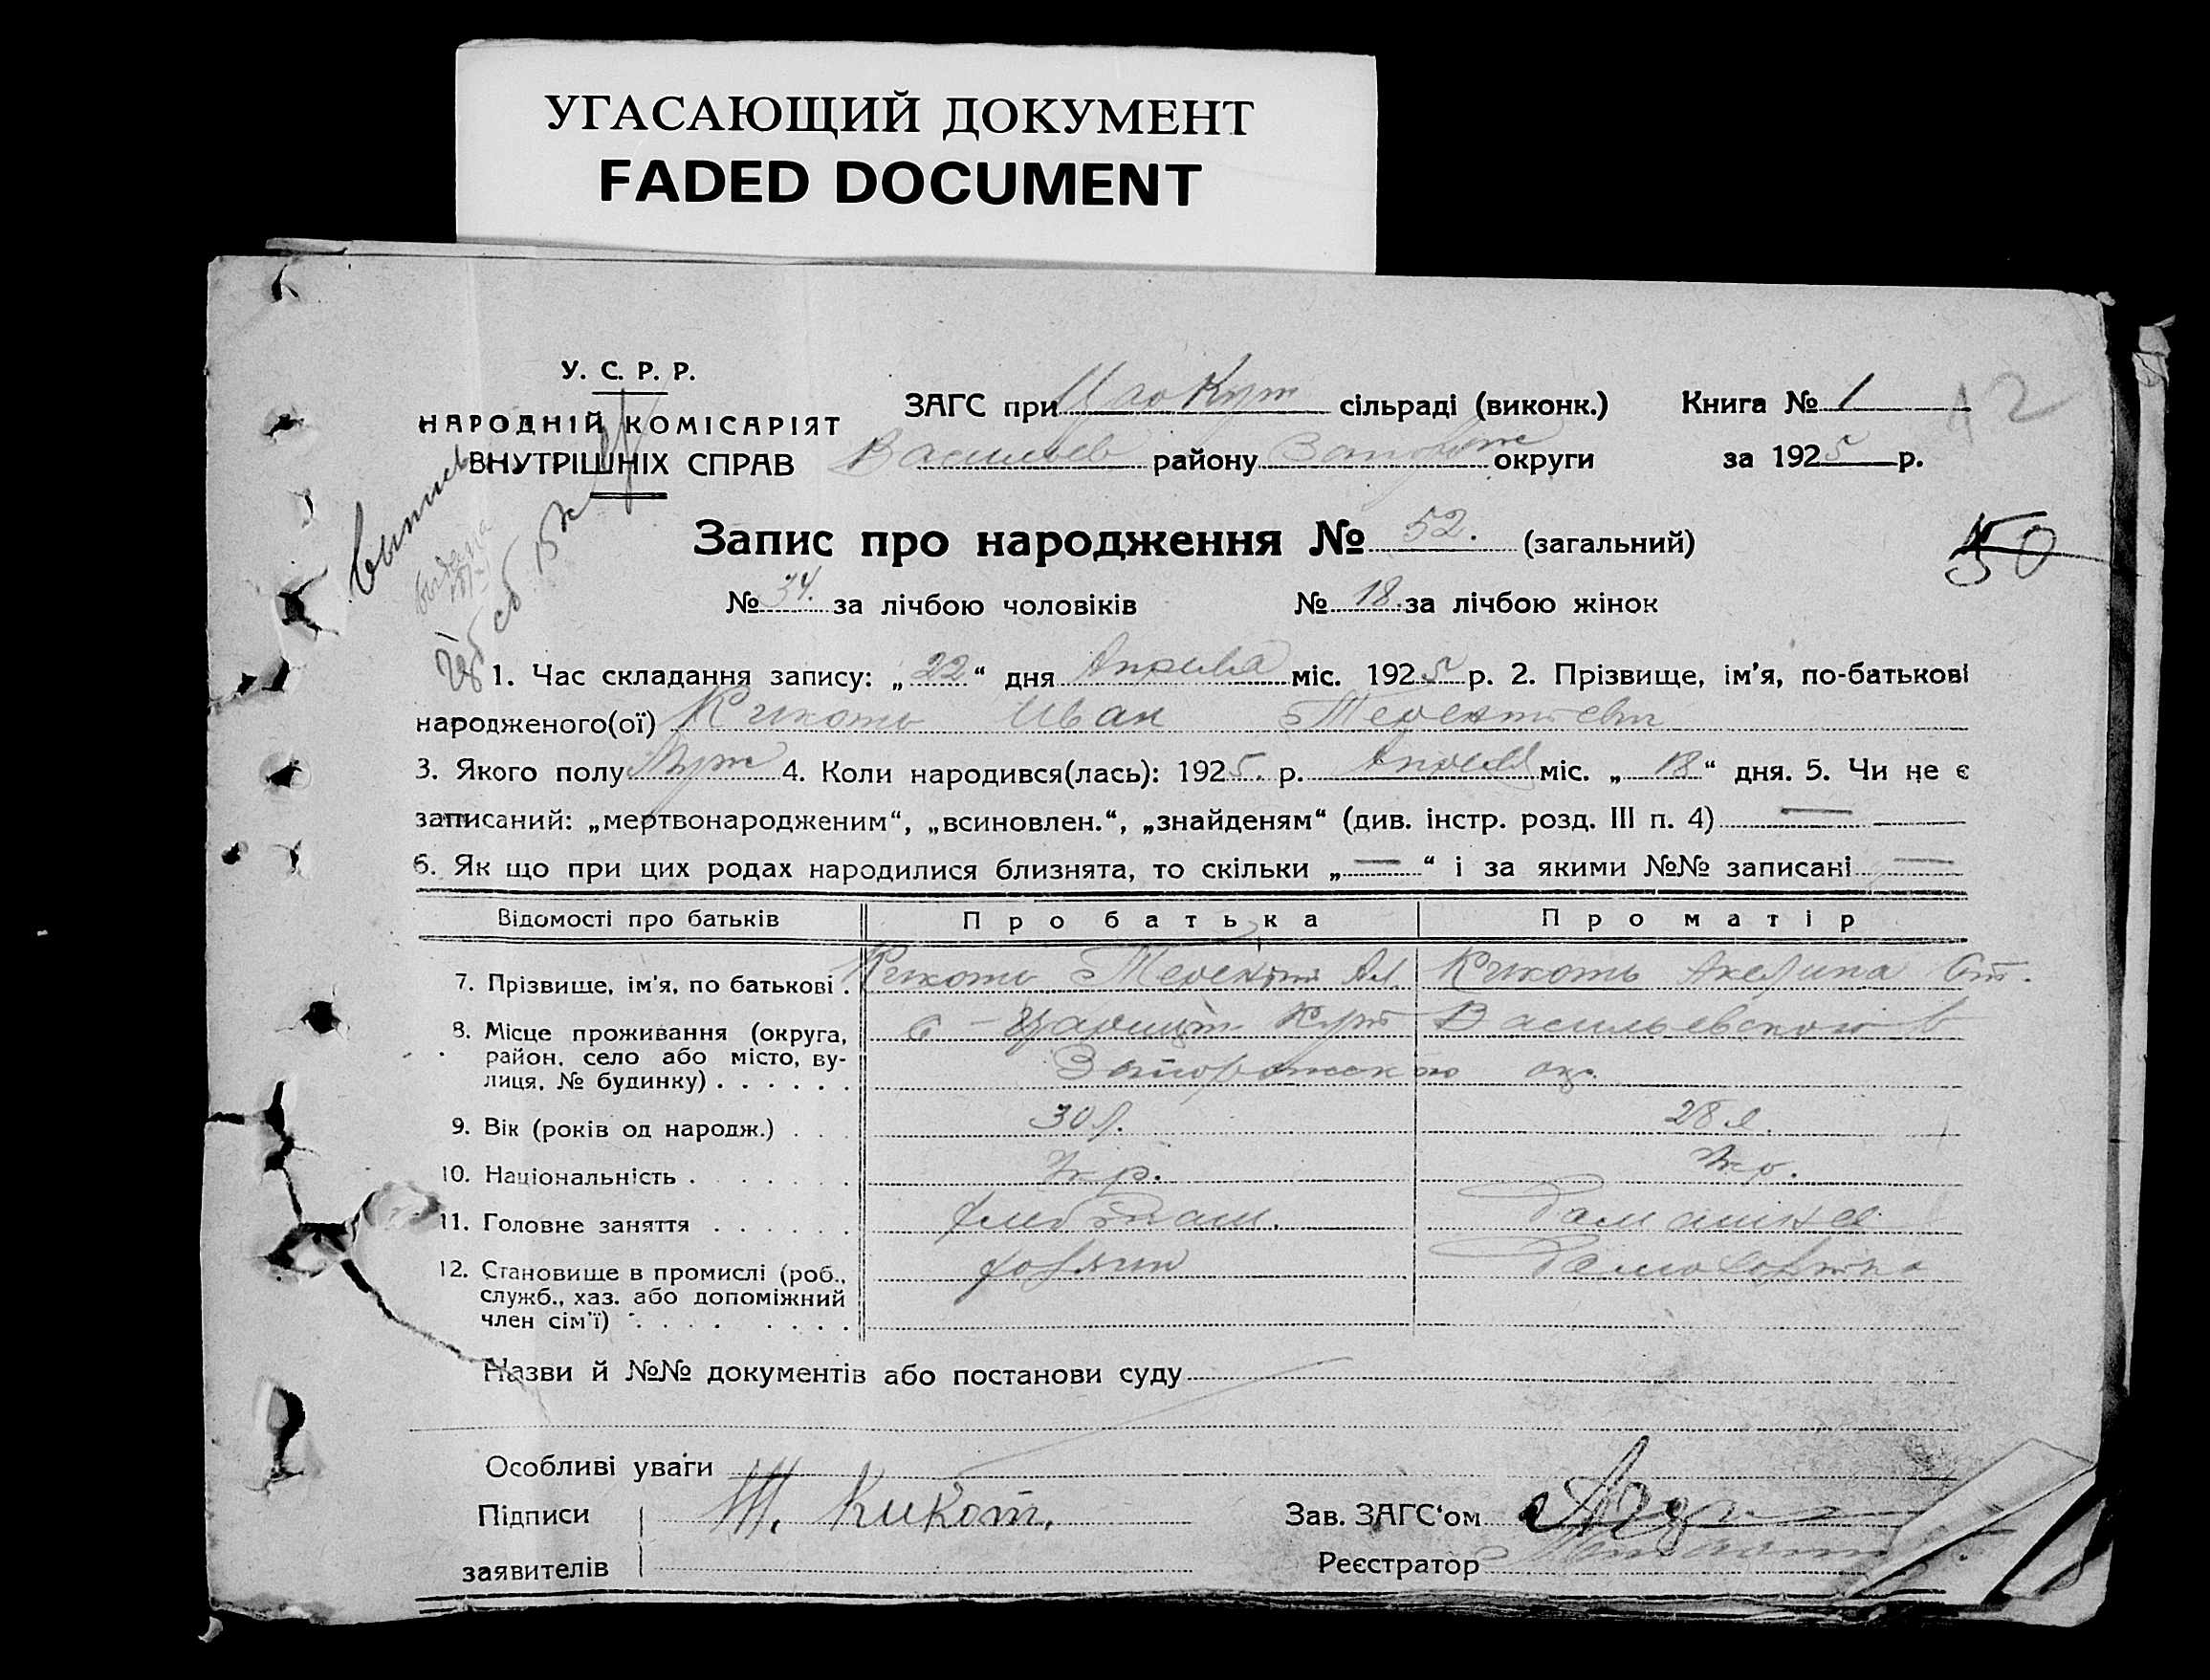 УГАСАЮЩИЙ ДОКУМЕНТ
FADED DOCUMENT
У. С. Р. Р.
НАРОДНІЙ КОМІСАРІЯТ
ВНУТРІШНІХ СПРАВ
ЗАГС при Кут сільраді (виконк.) Книга № 1
42
Васильев району Запорож округи за 1925 р.
Запис про народження № 52. (загальний)
50
№ 34. за лічбою чоловіків № 18. за лічбою жінок
1. Час складання запису: „22“ дня Апреля міс. 1925 р. 2. Прізвище, ім'я, по-батькові
народженого(ої) Кикоть Иван Терентьевич
3. Якого полу Муж 4. Коли народився(лась): 1925. р. Апреля міс. „18“ дня. 5. Чи не є
записаний: „мертвонародженим“, „всиновлен.“, „знайденям“ (див. інстр. розд. III п. 4) —
6. Як що при цих родах народилися близнята, то скільки „—“ і за якими №№ записані —
Відомості про батьків Про батька Про матір
7. Прізвище, ім'я, по батькові . Кикоть Терентий Ал. Кикоть Акелина Ст.
8. Місце проживання (округа, район, село або місто, вулиця, № будинку) . . . . . . Кут Васильевского
Запорожского ок.
9. Вік (років од народж.) . . . 30 л. 28 л.
10. Національність . . . . . . . Укр. Укр.
11. Головне заняття . . . . . . хлебопаш. Домашнея
12. Становище в промислі (роб.,
служб., хаз. або допоміжний
член сім'ї) . . . . . . . .
Назви й №№ документів або постанови суду
Особливі уваги
Підписи Т. Кикот. Зав. ЗАГС'ом
заявителів Реєстратор